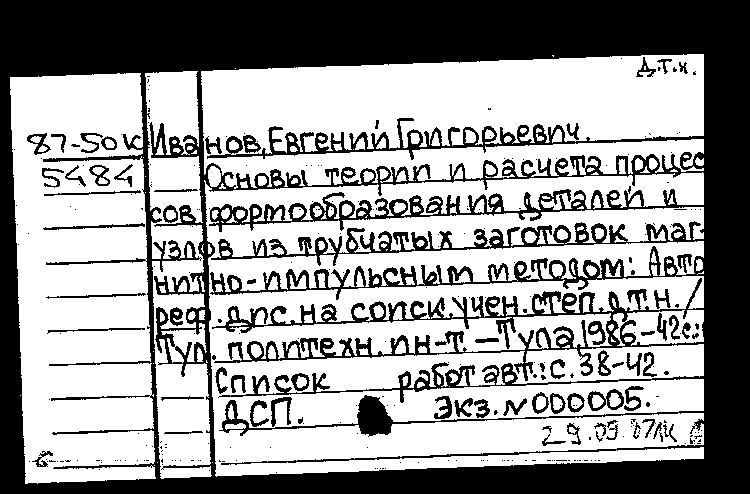 Д.т.н.
87-50к Иванов, Евгений Григорьевич.
5484 Основы теории и расчета процес
сов формообразования деталей и
узлов из трубчатых заготовок маг-
нитно-импульсным методом: Авто
реф. дис. на соиск. учен. степ. д.т.н. /
Тул. политехн. ин-т. – Тула, 1986 – 42с.:
Список работ авт.: с. 38-42.
ДСП. Экз. N 000005.
29.09.87